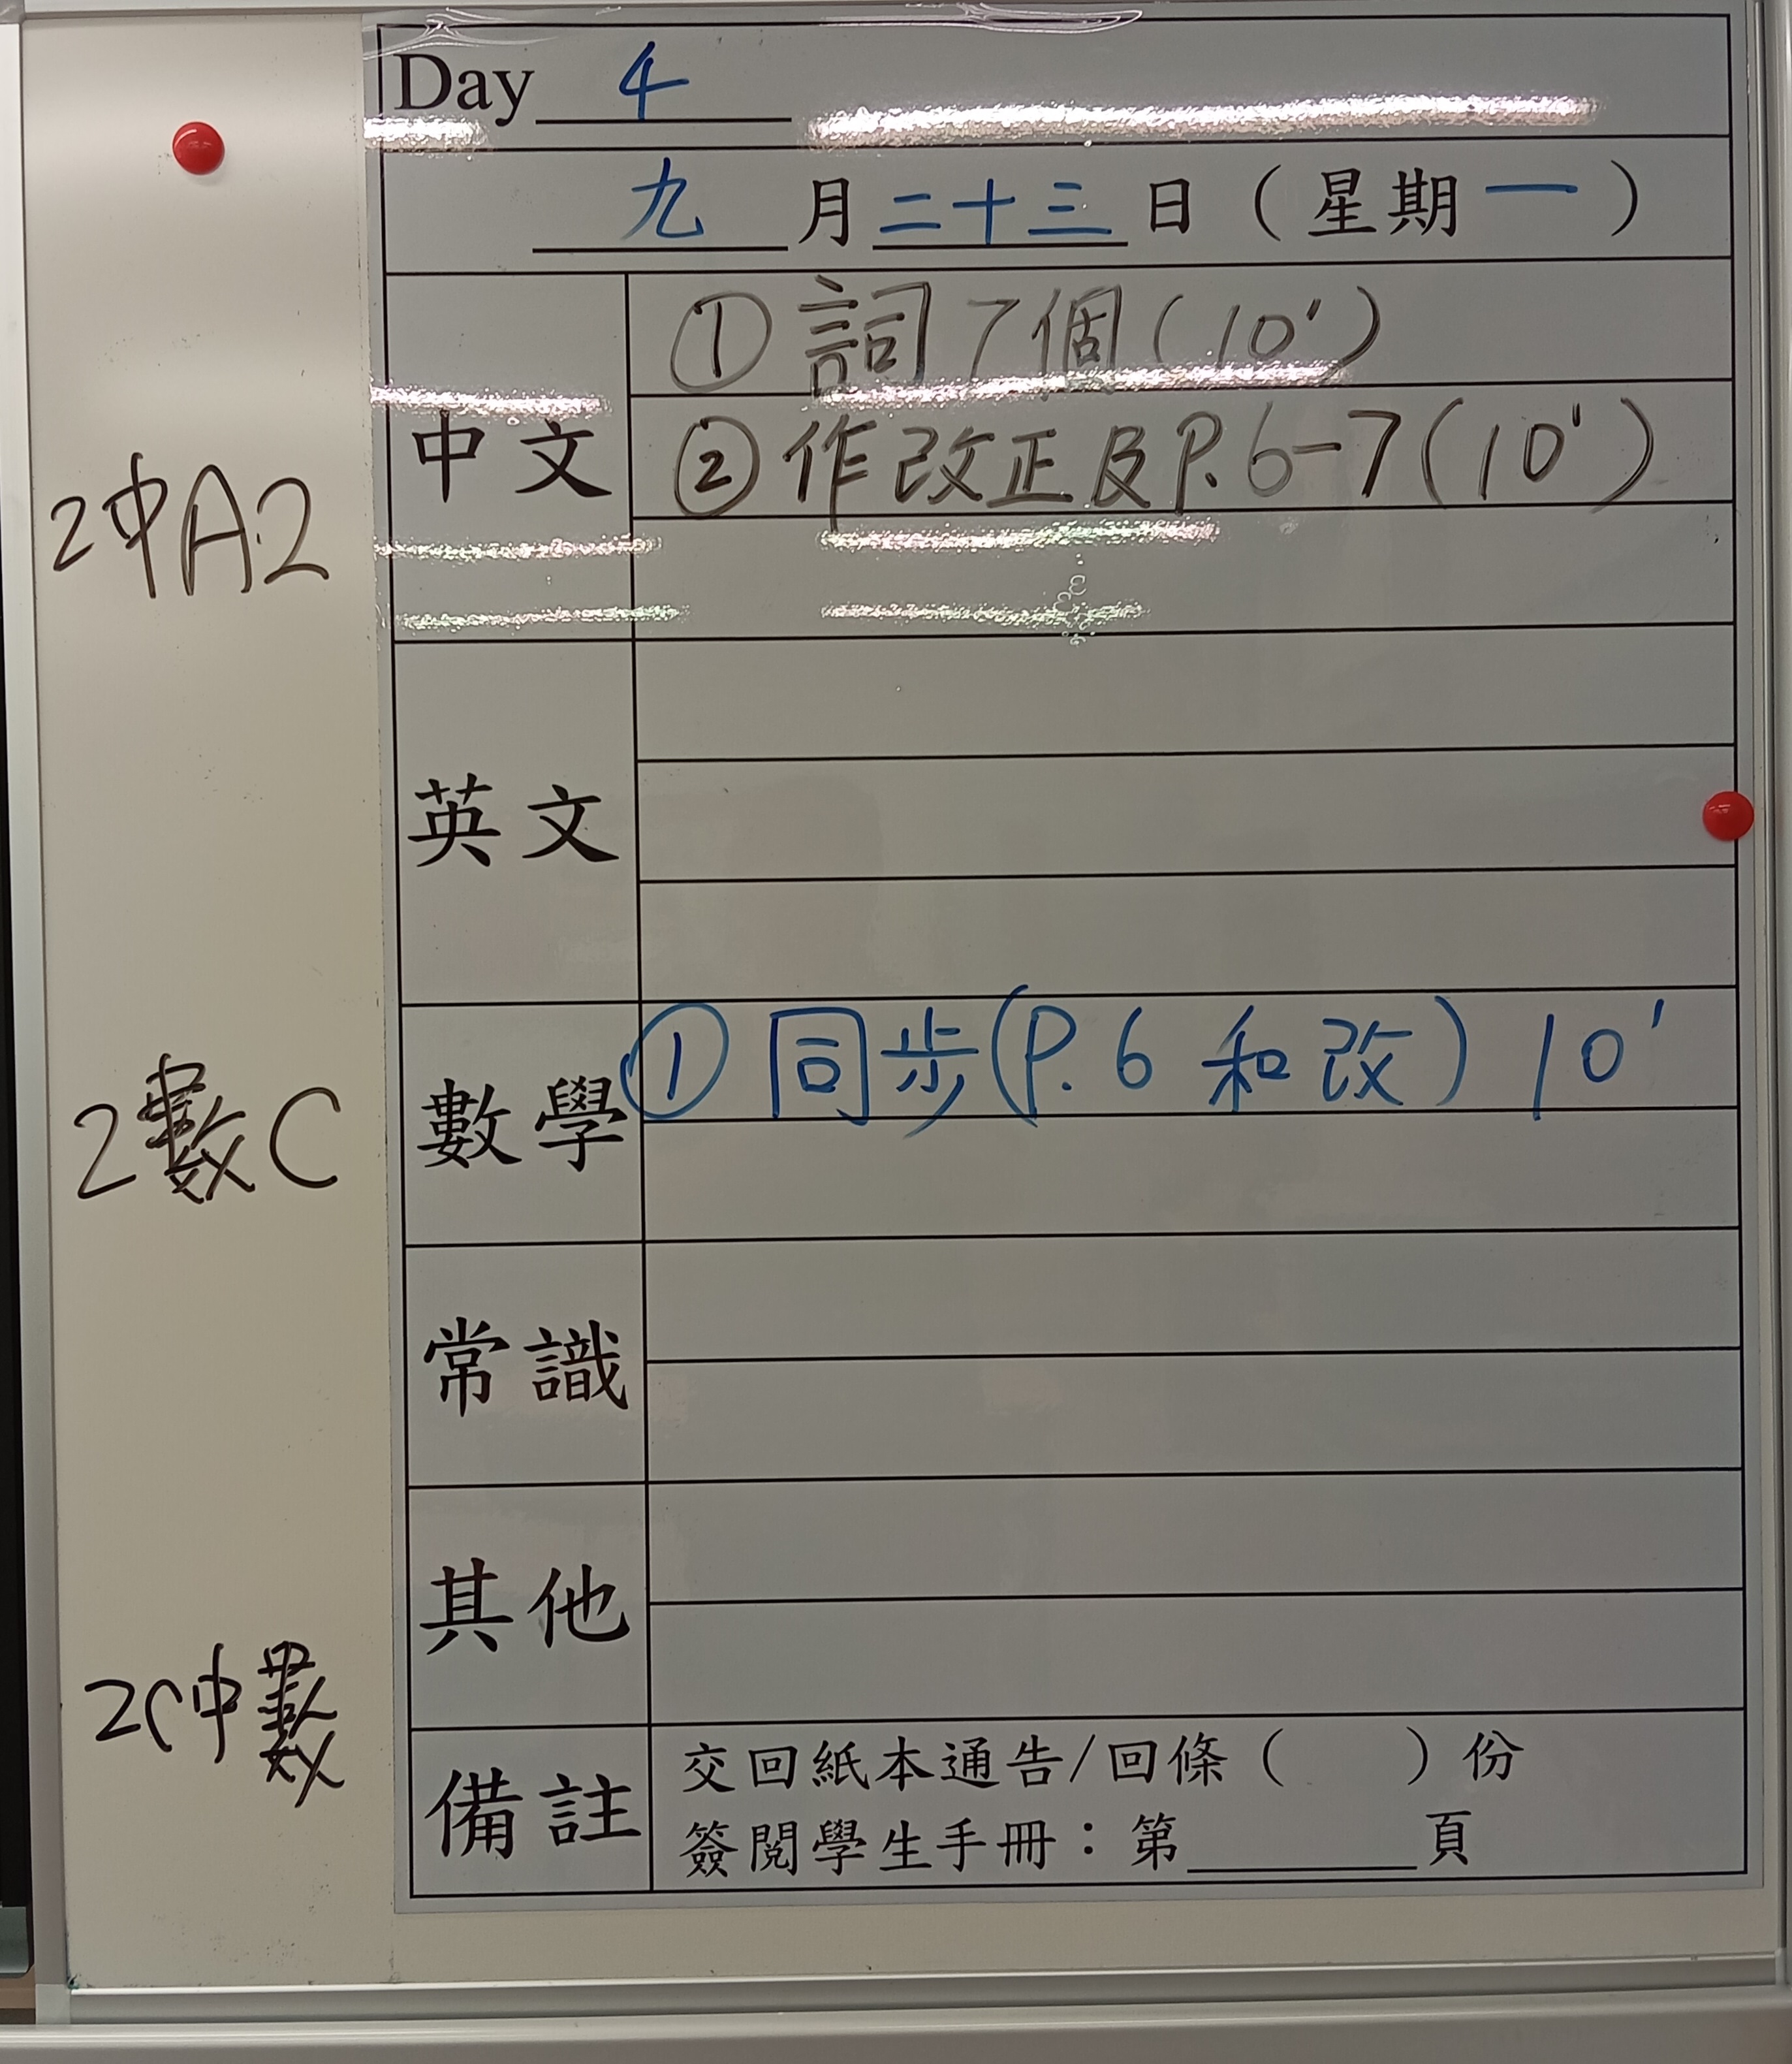 Day 4
九月二十三日（星期一）
中文
①詞7個(10')
②作改正及P.6-7(10')
2中A2
英文
數學
①同步(P.6和改)10'
2數C
常識
其他
2C中數
備註
交回紙本通告/回條（　）份
簽閱學生手冊：第____頁